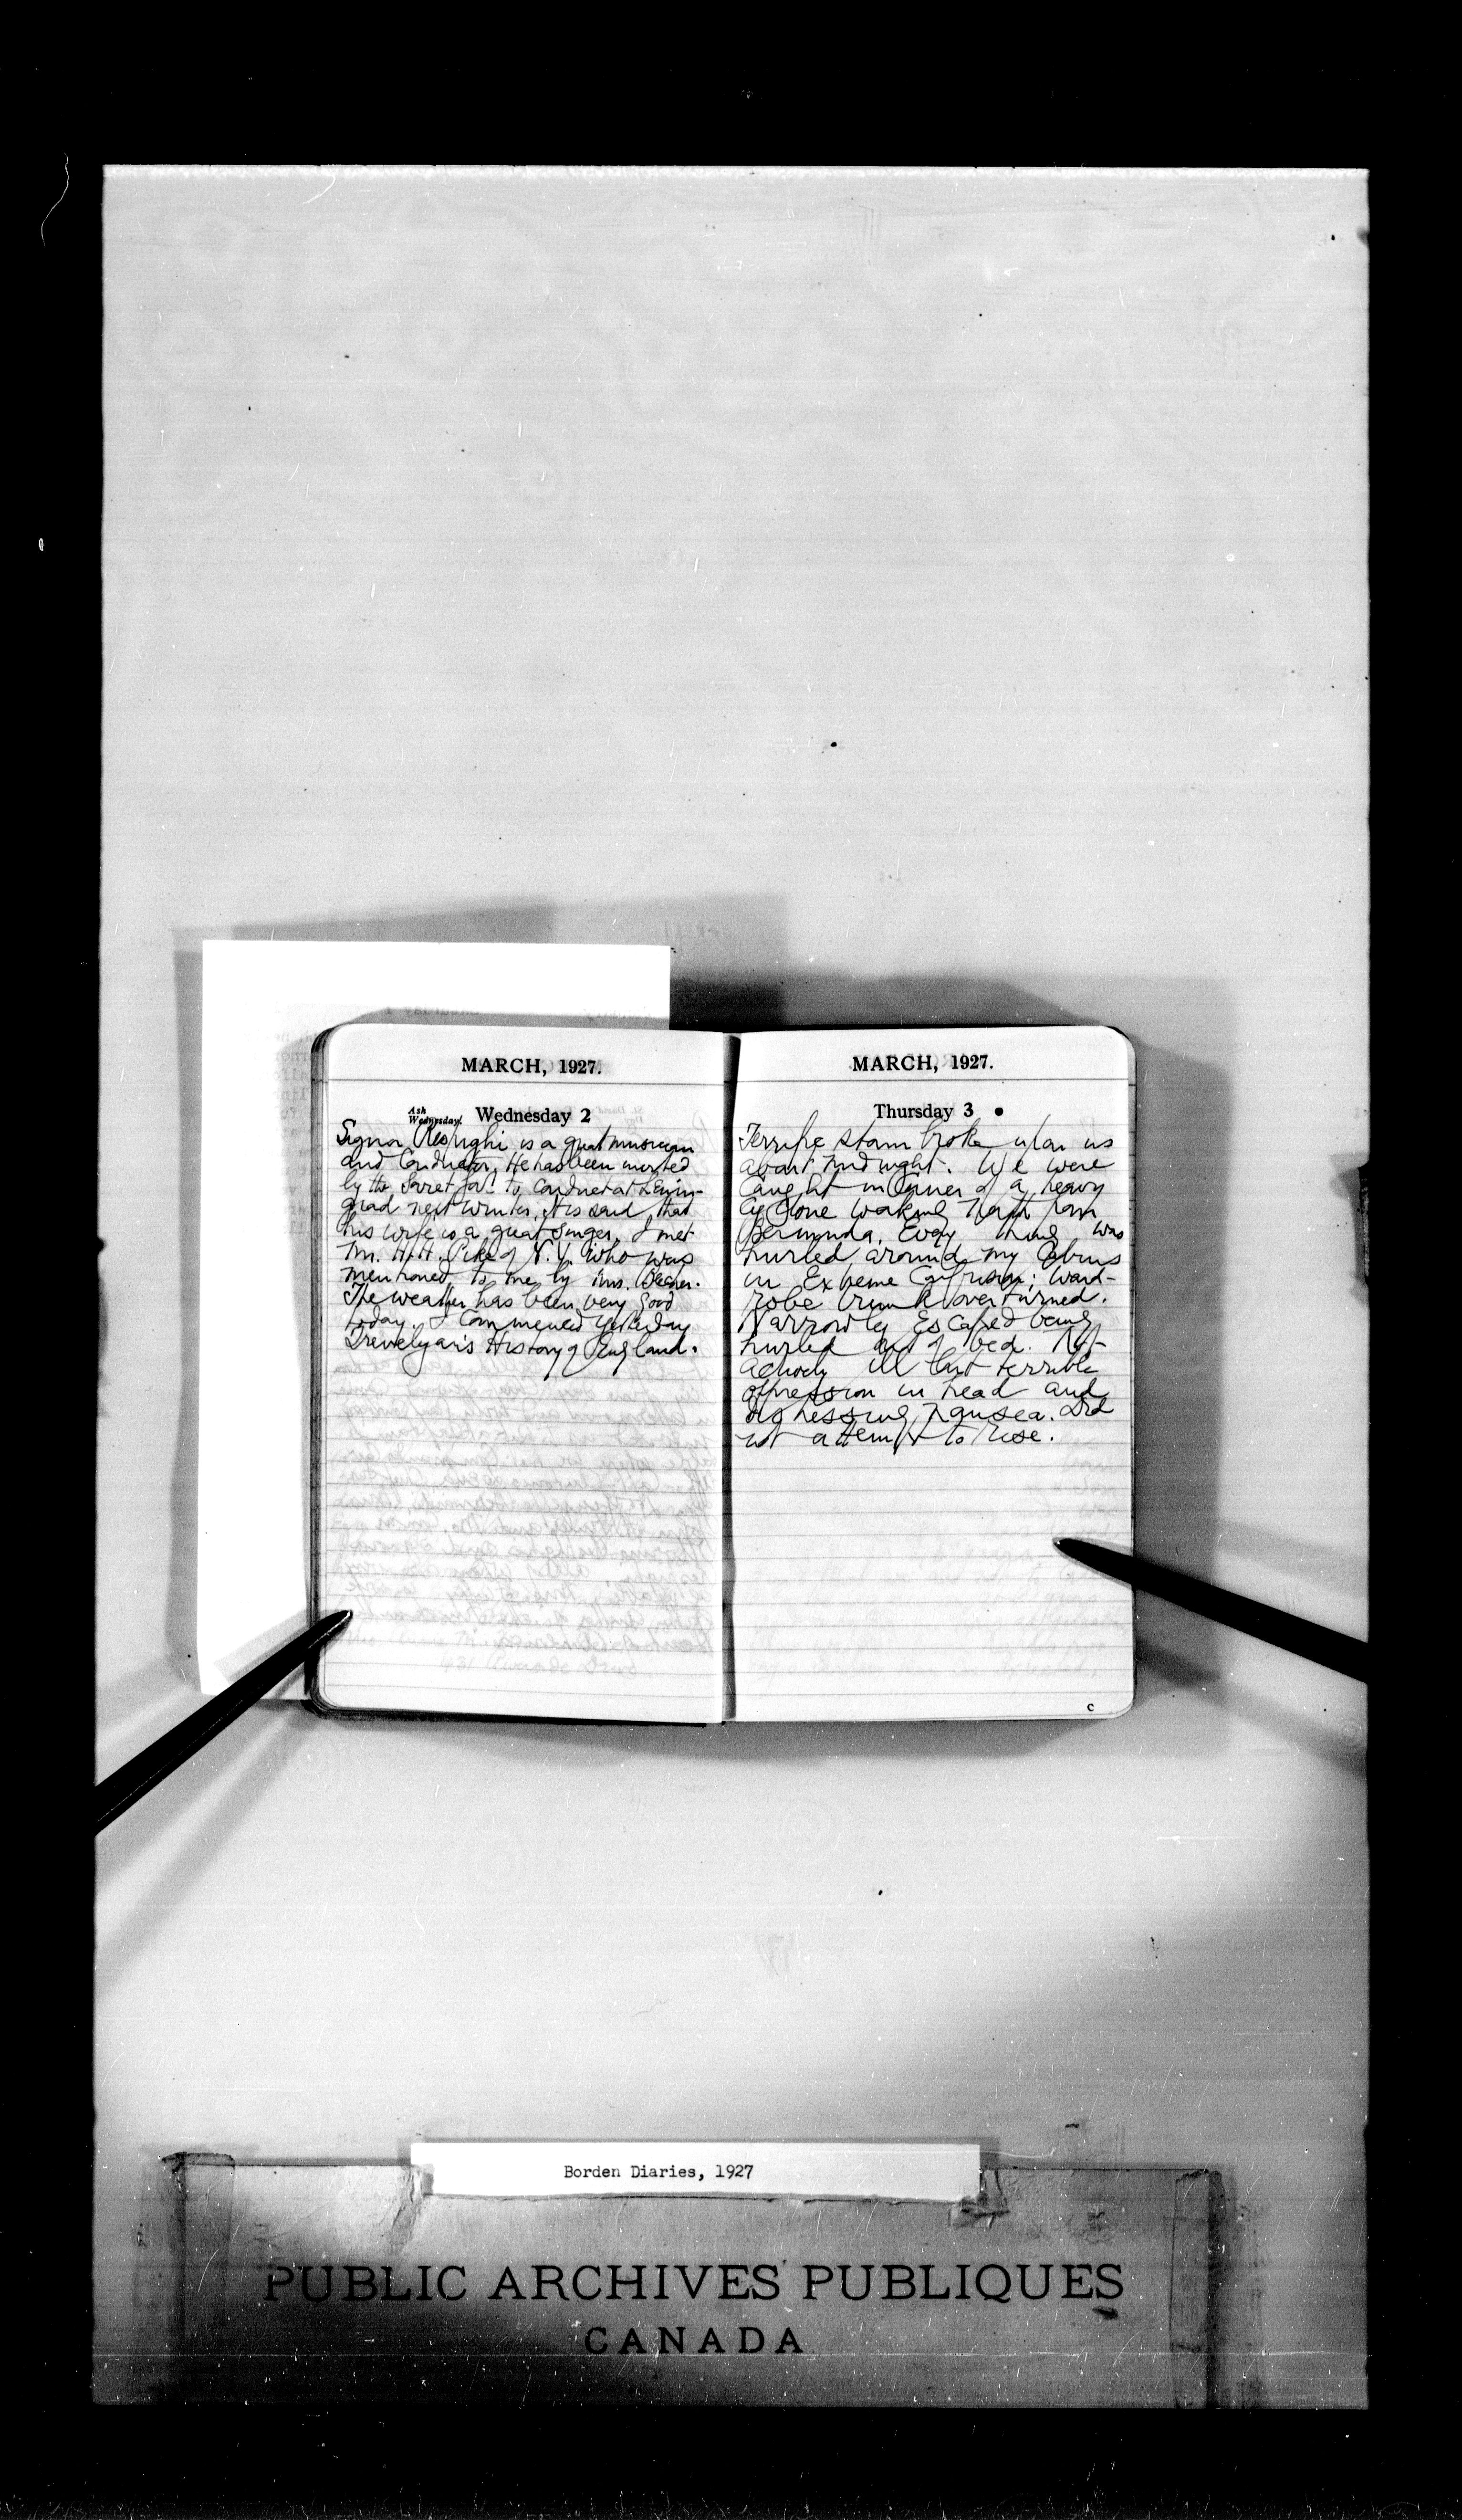 MARCH, 1927.
Ash
Wednesday. Wednesday 2
Signor Respighi is a great musician
and Conductor. He has been invited
by the Soviet Govt to conduct at Lenin-
grad next winter. It is said that
his wife is a great singer. I met
Mr. H.H. Pike of N.Y. who was
mentioned to me by Mrs.
The weather has been very good
today. I commenced yesterday
Trevelyan's History of England.
MARCH, 1927.
Thursday 3
Terrific storm broke upon us
about midnight. We were
caught in corner of a heavy
cyclone working North from
Bermuda. Every thing was
hurled around my Cabins
in Extreme Confusion; ward-
robe trunk overturned.
Narrowly Escaped being
hurled out of bed. Not
actively ill but terrible
oppression in head and
distressing nausea. Did
not attempt to rise.
c
Borden Diaries, 1927
PUBLIC ARCHIVES PUBLIQUES
CANADA